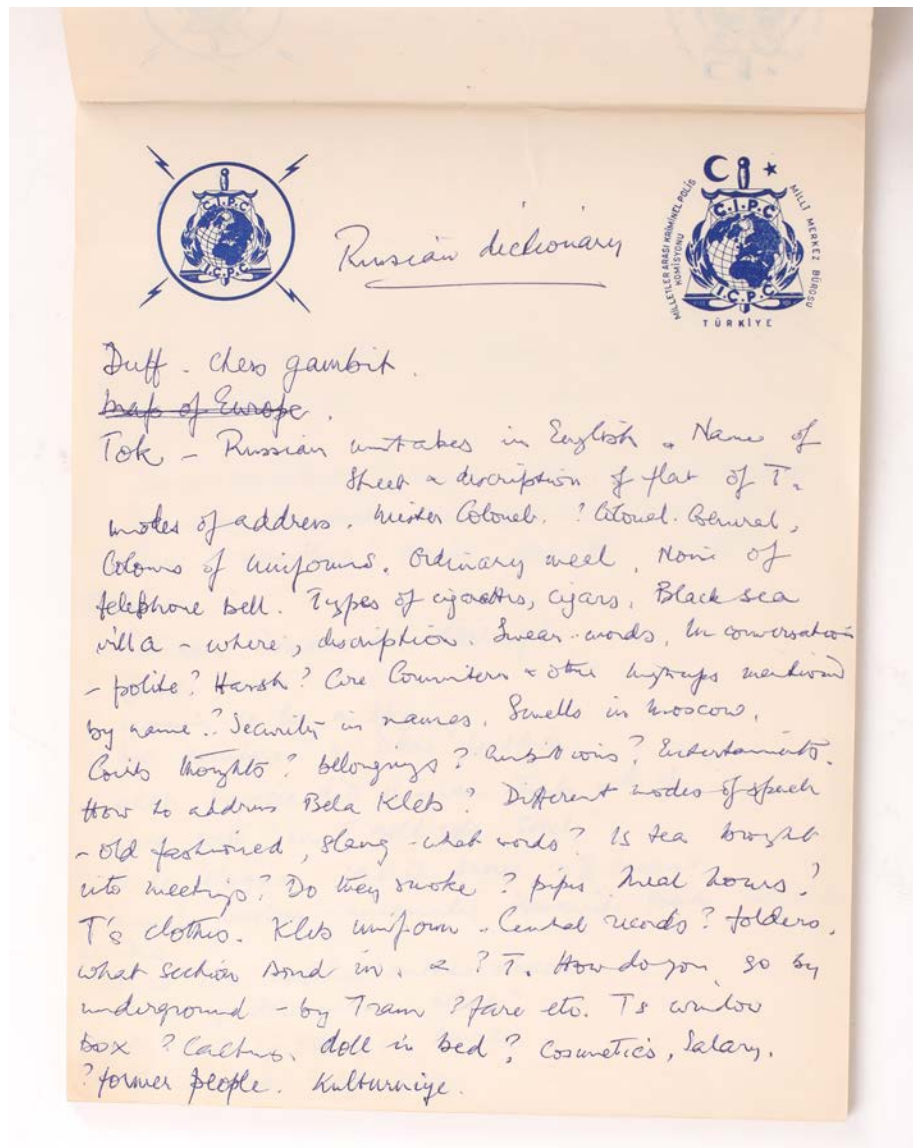 C.I.P.C
I.C.P.C
Russian dictionary
MİLLETLER ARASI KRİMİNEL POLİS
KOMİSYONU
C.I.P.C
I.C.P.C
MİLLİ MERKEZ BÜROSU
TÜRKİYE
Duff - Chess gambit.
Map of Europe.
Tok - Russian mistakes in English. Name of
street & description of flat of T.
modes of address. Mister Colonel. ? Colonel. General,
Colours of uniforms. Ordinary meal, Noise of
telephone bell. Types of cigarettes, cigars, Black sea
villa - where, description. Swear-words, in conversation
- polite? Harsh? Are Comintern & other mentioned
by name? Security in names. Smells in Moscow,
Girls thoughts? belongings? ambitions? Entertainments.
How to address Bela Kleb? Different modes of speech
- old fashioned, slang - what words? Is tea brought
into meetings? Do they smoke? pipes Meal hours?
T's clothes. Klebs uniform. Central records? folders,
what section Bond in. & ? T. How do you go by
underground - by Tram ? fare etc. Ts window
box ? Cactus, doll in bed? Cosmetics, Salary.
? former people. Kulturniye.